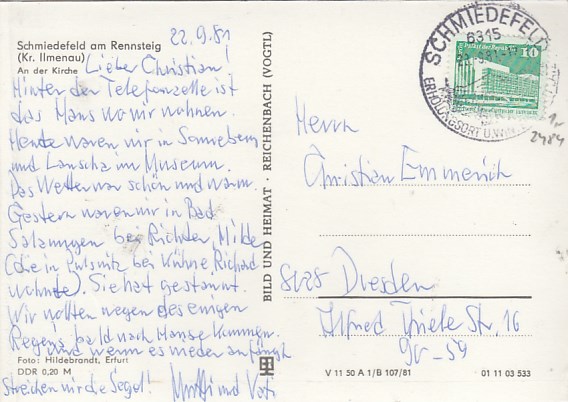 22.9.81
Schmiedefeld am Rennsteig
(Kr. Ilmenau)
An der Kirche
Lieber Christian!
Hinter der Telefonzelle ist
das Haus wo wir wohnen.
Heute waren wir in Sonneberg
und Lauscha im Museum.
Das Wetter war schön und warm.
Gestern waren wir in Bad
Salzungen bei Richter, Milde
(die in Pulsnitz bei Kühne, Richard
wohnte). Sie hat gestaunt.
Wir wollten wegen des ewigen
Regens bald nach Hause kommen.
und wenn es wieder anfängt
Streichen wir die Segel! Mutti und Vati
Foto: Hildebrandt, Erfurt
DDR 0,20 M
BILD UND HEIMAT · REICHENBACH (VOGTL)
SCHMIEDEFELD
6315
22.-9.81
ERHOLUNGSORT U. WINTERSPORTPLATZ
Palast der Republik
10
1,-
2484
Herrn
Christian Emmerich
8025 Dresden
Alfred Thiele Str. 16
90-59
V 11 50 A 1/B 107/81
01 11 03 533